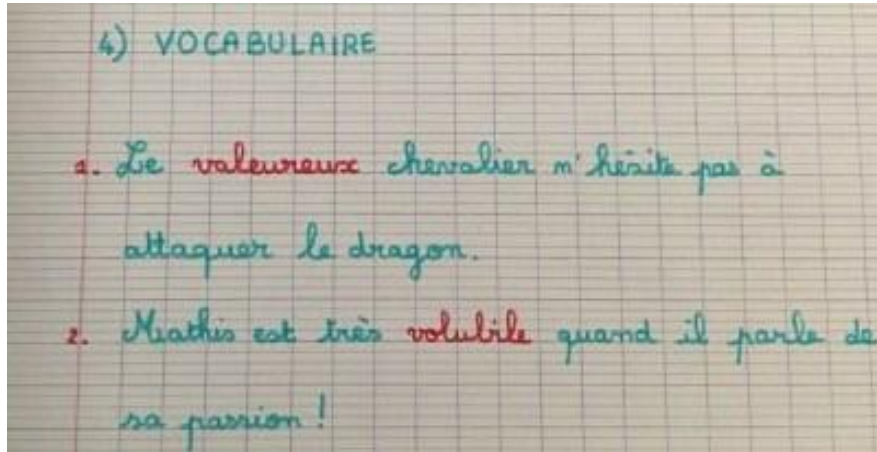 4) VOCABULAIRE
1. Le valeureux chevalier n'hésite pas à
attaquer le dragon.
2. Mathis est très volubile quand il parle de
sa passion !